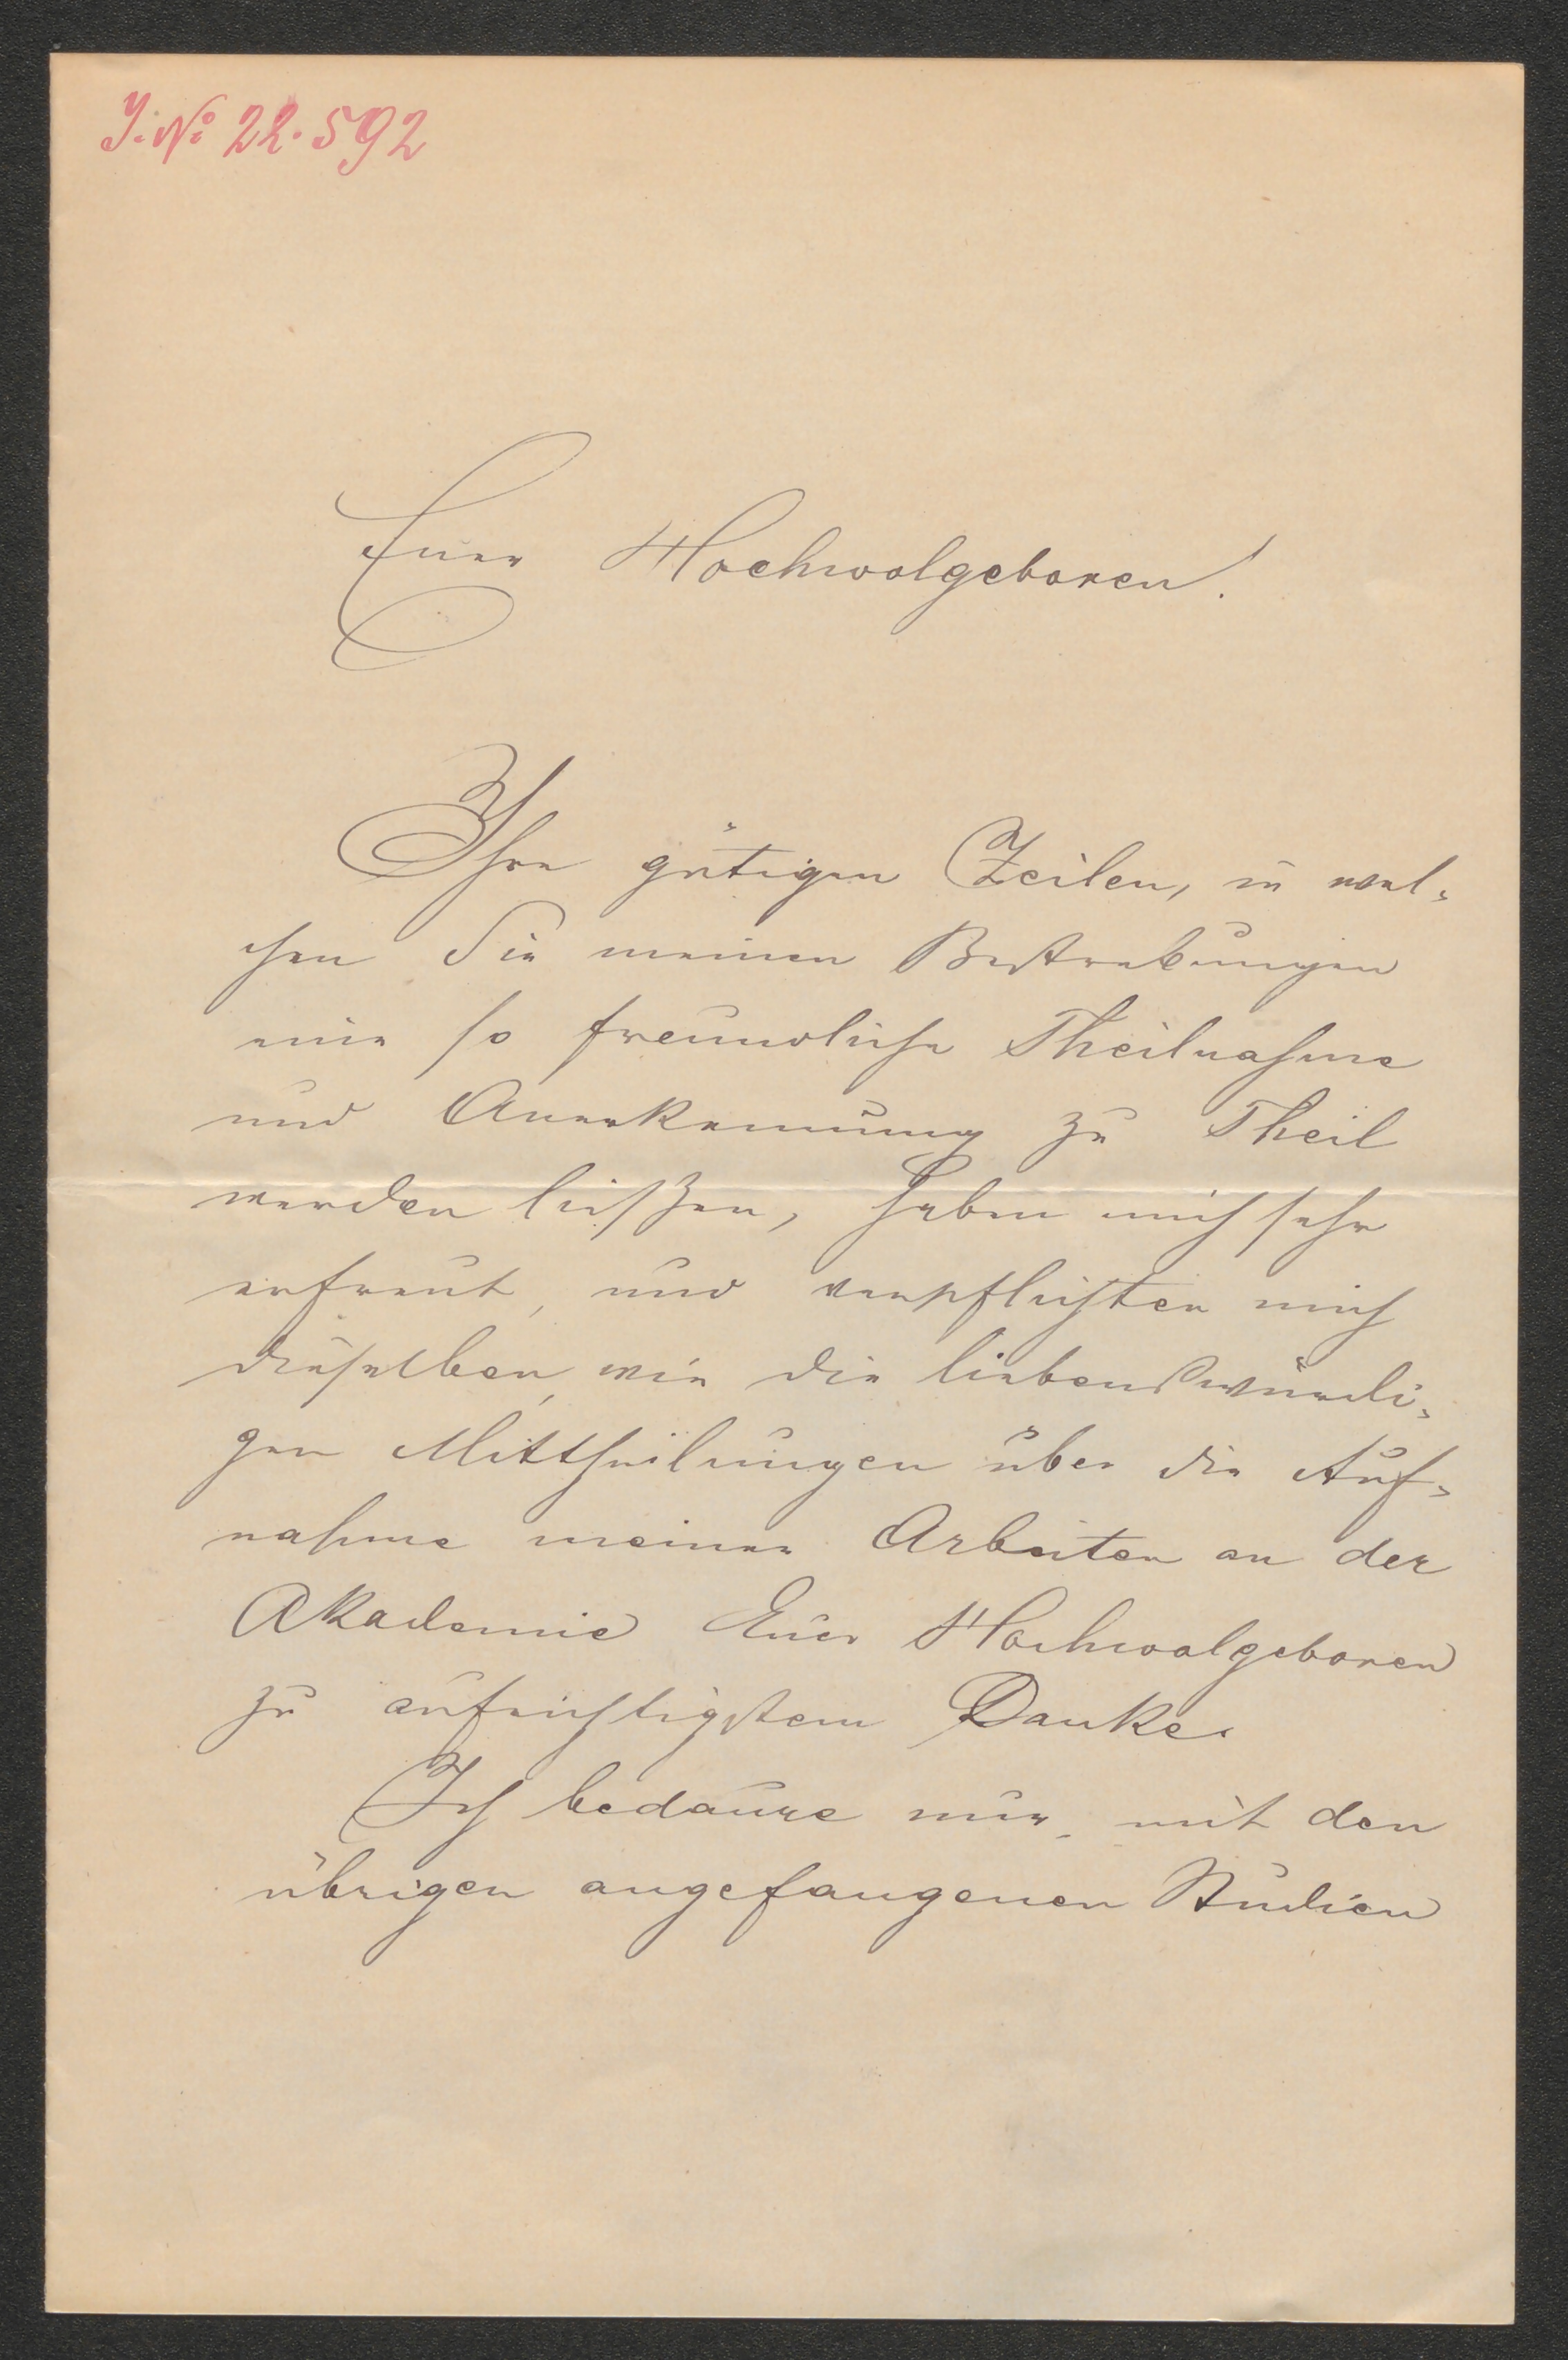 J. No 22.592
Euer Hochwolgeboren!
Ihre gütigen Zeilen, in wel-
chen Sie meinen Bestrebungen
eine so freundliche Theilnahme
und Anerkennung zu Theil
werden ließen, haben mich sehr
erfreut, und verpflichten mich
dieselben, wie die liebenswürdi-
gen Mittheilungen über die Auf-
nahme meiner Arbeiten an der
Akademie Euer Hochwolgeboren
zu aufrichtigstem Danke.
Ich bedaure nur, mit den
übrigen angefangenen Studien